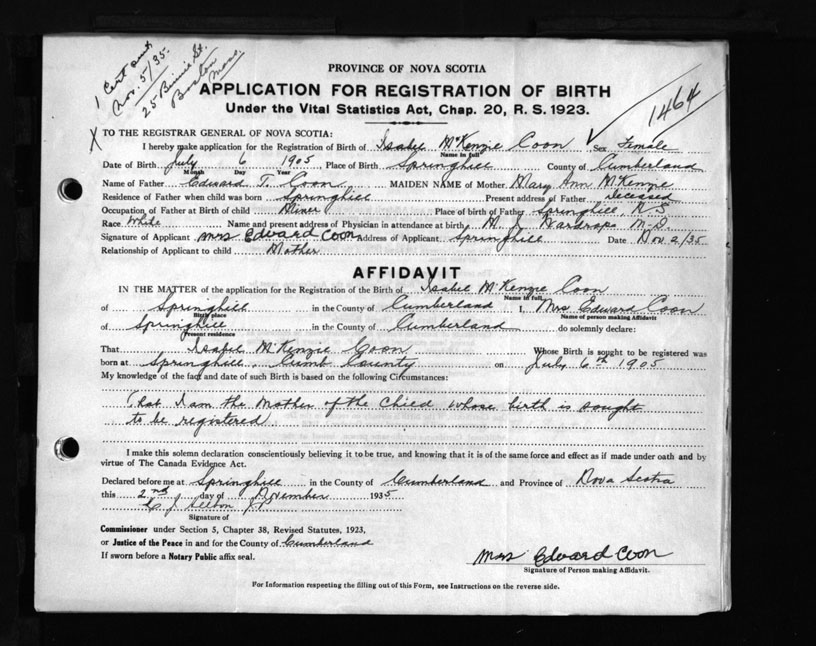 1 Cert sent
Nov. 5/35.
25 St.
Boston
Mass.
1464
PROVINCE OF NOVA SCOTIA
APPLICATION FOR REGISTRATION OF BIRTH
Under the Vital Statistics Act, Chap. 20, R. S. 1923.
X TO THE REGISTRAR GENERAL OF NOVA SCOTIA:
I hereby make application for the Registration of Birth of Isabel McKenzie Coon Sex Female
Name in full
Date of Birth July 6 1905, Place of Birth Springhill County of Cumberland
Month Day Year
Name of Father Edward T. Coon MAIDEN NAME of Mother Mary Ann McKenzie
Residence of Father when child was born Springhill Present address of Father deceased
Occupation of Father at Birth of child Miner Place of birth of Father Springhill, N.S
Race White Name and present address of Physician in attendance at birth M. J. Wardrope M.D.
Signature of Applicant Mrs Edward Coon Address of Applicant Springhill Date Nov 2/35
Relationship of Applicant to child Mother
AFFIDAVIT
IN THE MATTER of the application for the Registration of the Birth of Isabel McKenzie Coon
Name in full
of Springhill in the County of Cumberland I, Mrs Edward Coon
Birth place Name of person making Affidavit
of Springhill in the County of Cumberland do solemnly declare:
Present residence
That Isabel McKenzie Coon Whose Birth is sought to be registered was
born at Springhill, Cumb County on July 6th 1905
My knowledge of the fact and date of such Birth is based on the following Circumstances:
That I am the Mother of the Child whose birth is sought
to be registered
I make this solemn declaration conscientiously believing it to be true, and knowing that it is of the same force and effect as if made under oath and by
virtue of The Canada Evidence Act.
Declared before me at Springhill in the County of Cumberland and Province of Nova Scotia
this 2nd day of November 1935
Signature of
Commissioner under Section 5, Chapter 38, Revised Statutes, 1923,
or Justice of the Peace in and for the County of Cumberland
If sworn before a Notary Public affix seal.
Mrs Edward Coon
Signature of Person making Affidavit.
For Information respecting the filling out of this Form, see Instructions on the reverse side.